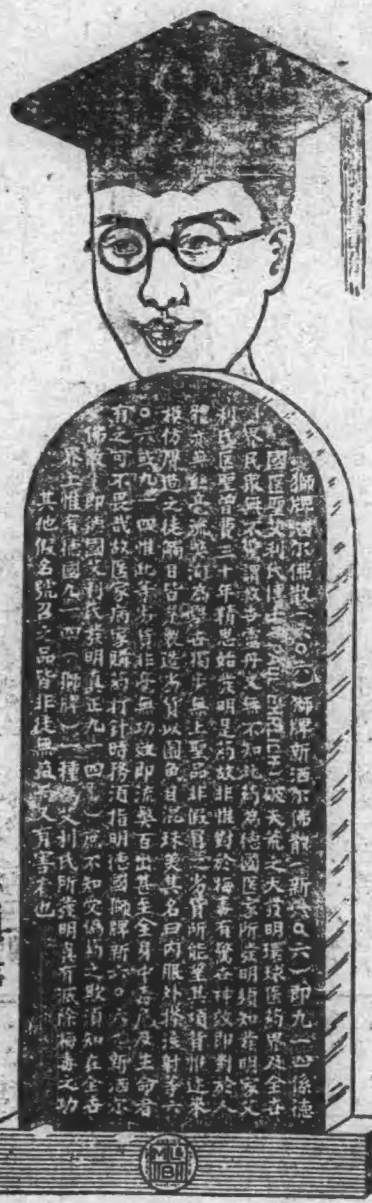 獅牌洒尔佛散(六〇六)獅牌新洒尔佛散(新六〇六)即九一四係德
國医聖艾利氏博士(PAUL EHRLICH)破天荒之大發明環球医药界及全世
界民眾無不驚謂救世靈丹又無不知此药為德國医家所發明須知發明家艾
利氏医聖曾費三十年精思始發明是药故非惟對於梅毒有驚奇神效即對於人
體亦無絲毫流弊洵為舉世獨步無上聖品非假冒之劣貨所能望其項背惟近來
模仿僞造之徒觸目皆是製造劣貨以圖魚目混珠美其名曰内服外搽注射等六
〇六或九一四惟此等劣貨非毫無功效即流弊百出甚至全身中毒危及生命者
有之可不畏哉故医家病家購药打針時務須指明德國獅牌新六〇六(新洒尔
佛散)即德國艾利氏發明真正九一四庶不知受偽药之欺須知在全世
界上惟有德國九一四(獅牌)一種為艾利氏所發明真有滅除梅毒之功
其他假名號召之品皆非徒無益而又有害者也